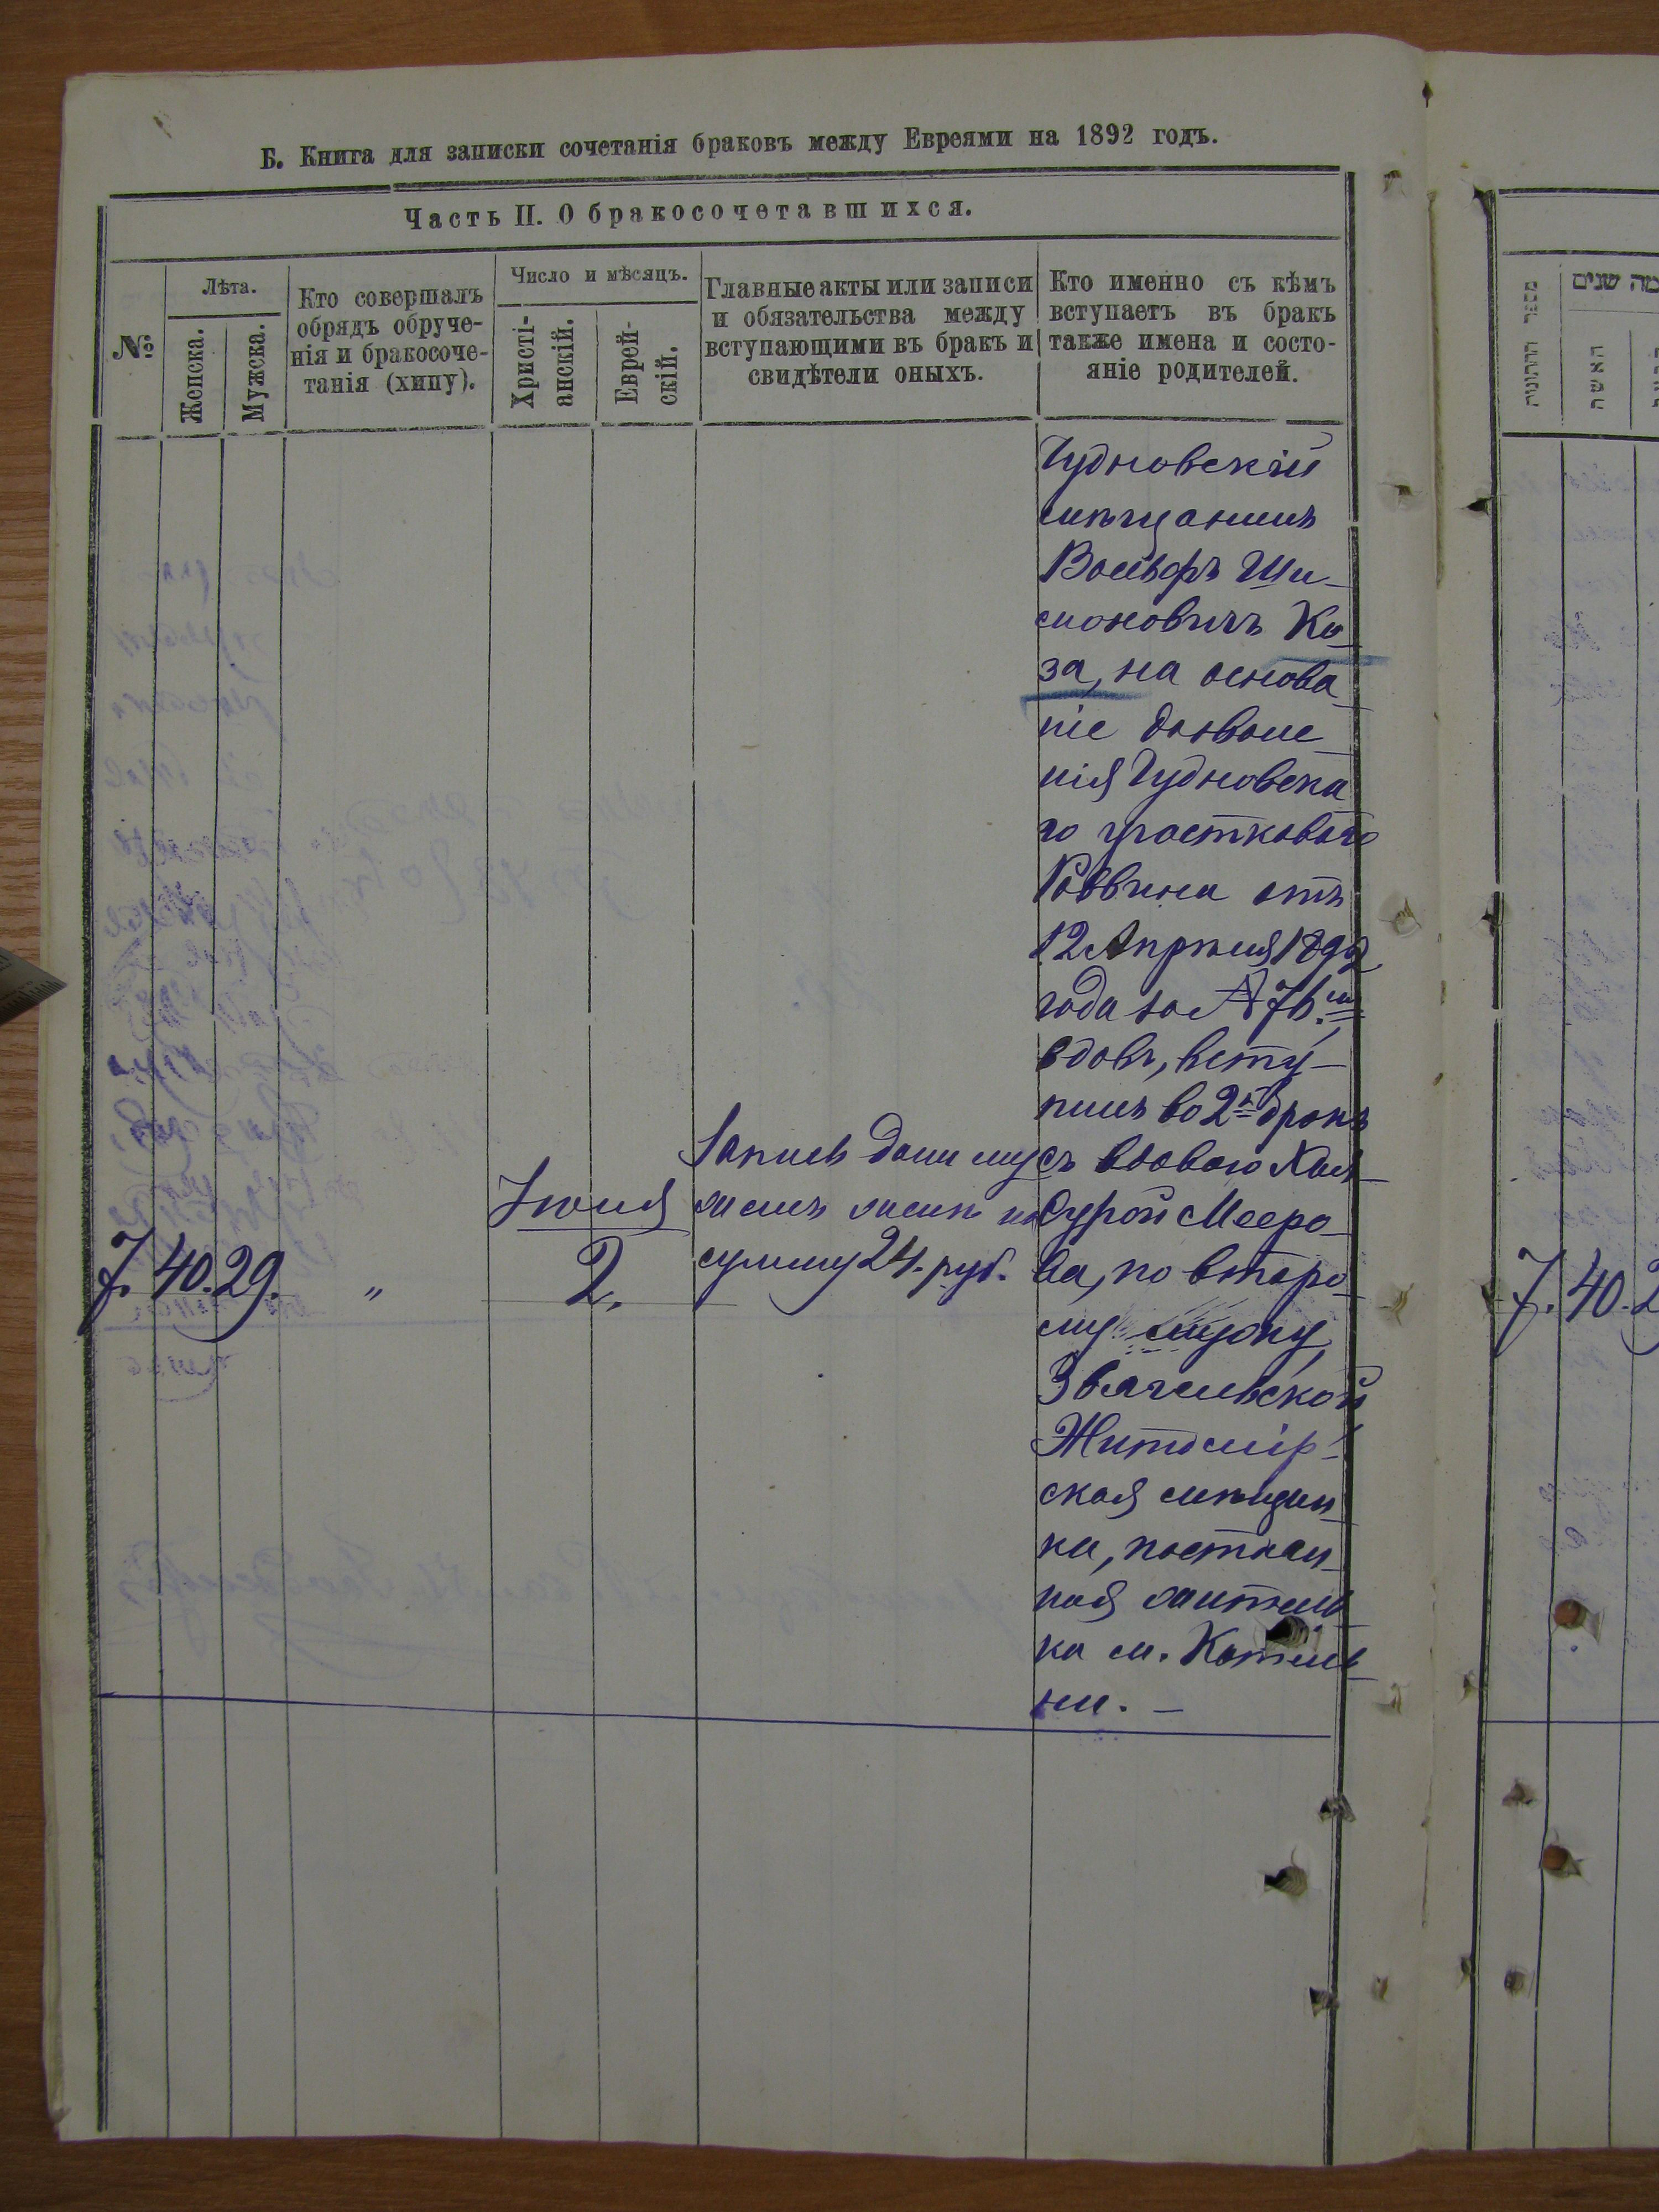 Б. Книга для записки сочетанія браковъ между Евреями на 1892 годъ.
Часть II. О бракосочетавшихся.
№
Лѣта.
Женска.
Мужска.
Кто совершалъ
обрядъ обруче-
нія и бракосоче-
танія (хипу).
Число и мѣсяцъ.
Христі-
анскій.
Еврей-
скій.
Главные акты или записи
и обязательства между
вступающими въ бракъ и
свидѣтели оныхъ.
Кто именно съ кѣмъ
вступаетъ въ бракъ
также имена и состо-
яніе родителей.
7. 40. 29. „
Іюля
2.
Запись дани му
жемъ женѣ на
сумму 24. руб.
Чудновскій
мѣщанинъ
Вольфъ Ши-
моновичъ Ко-
за, на основа-
ніе дозволе-
нія Чудновска-
го участковаго
Раввина отъ
12 Апрѣля 1892
года за № 76.
вдовъ, всту-
пилъ во 2й бракъ
съ вдовою Хая-
Сурой Мееро-
ва, по второ-
му мужу
Звягельской
Житомір-
ская мѣщан-
ка, постоян-
ная житель-
ка м. Котель-
ни. –
מספר החתונות
שנים
האשה
7. 40.